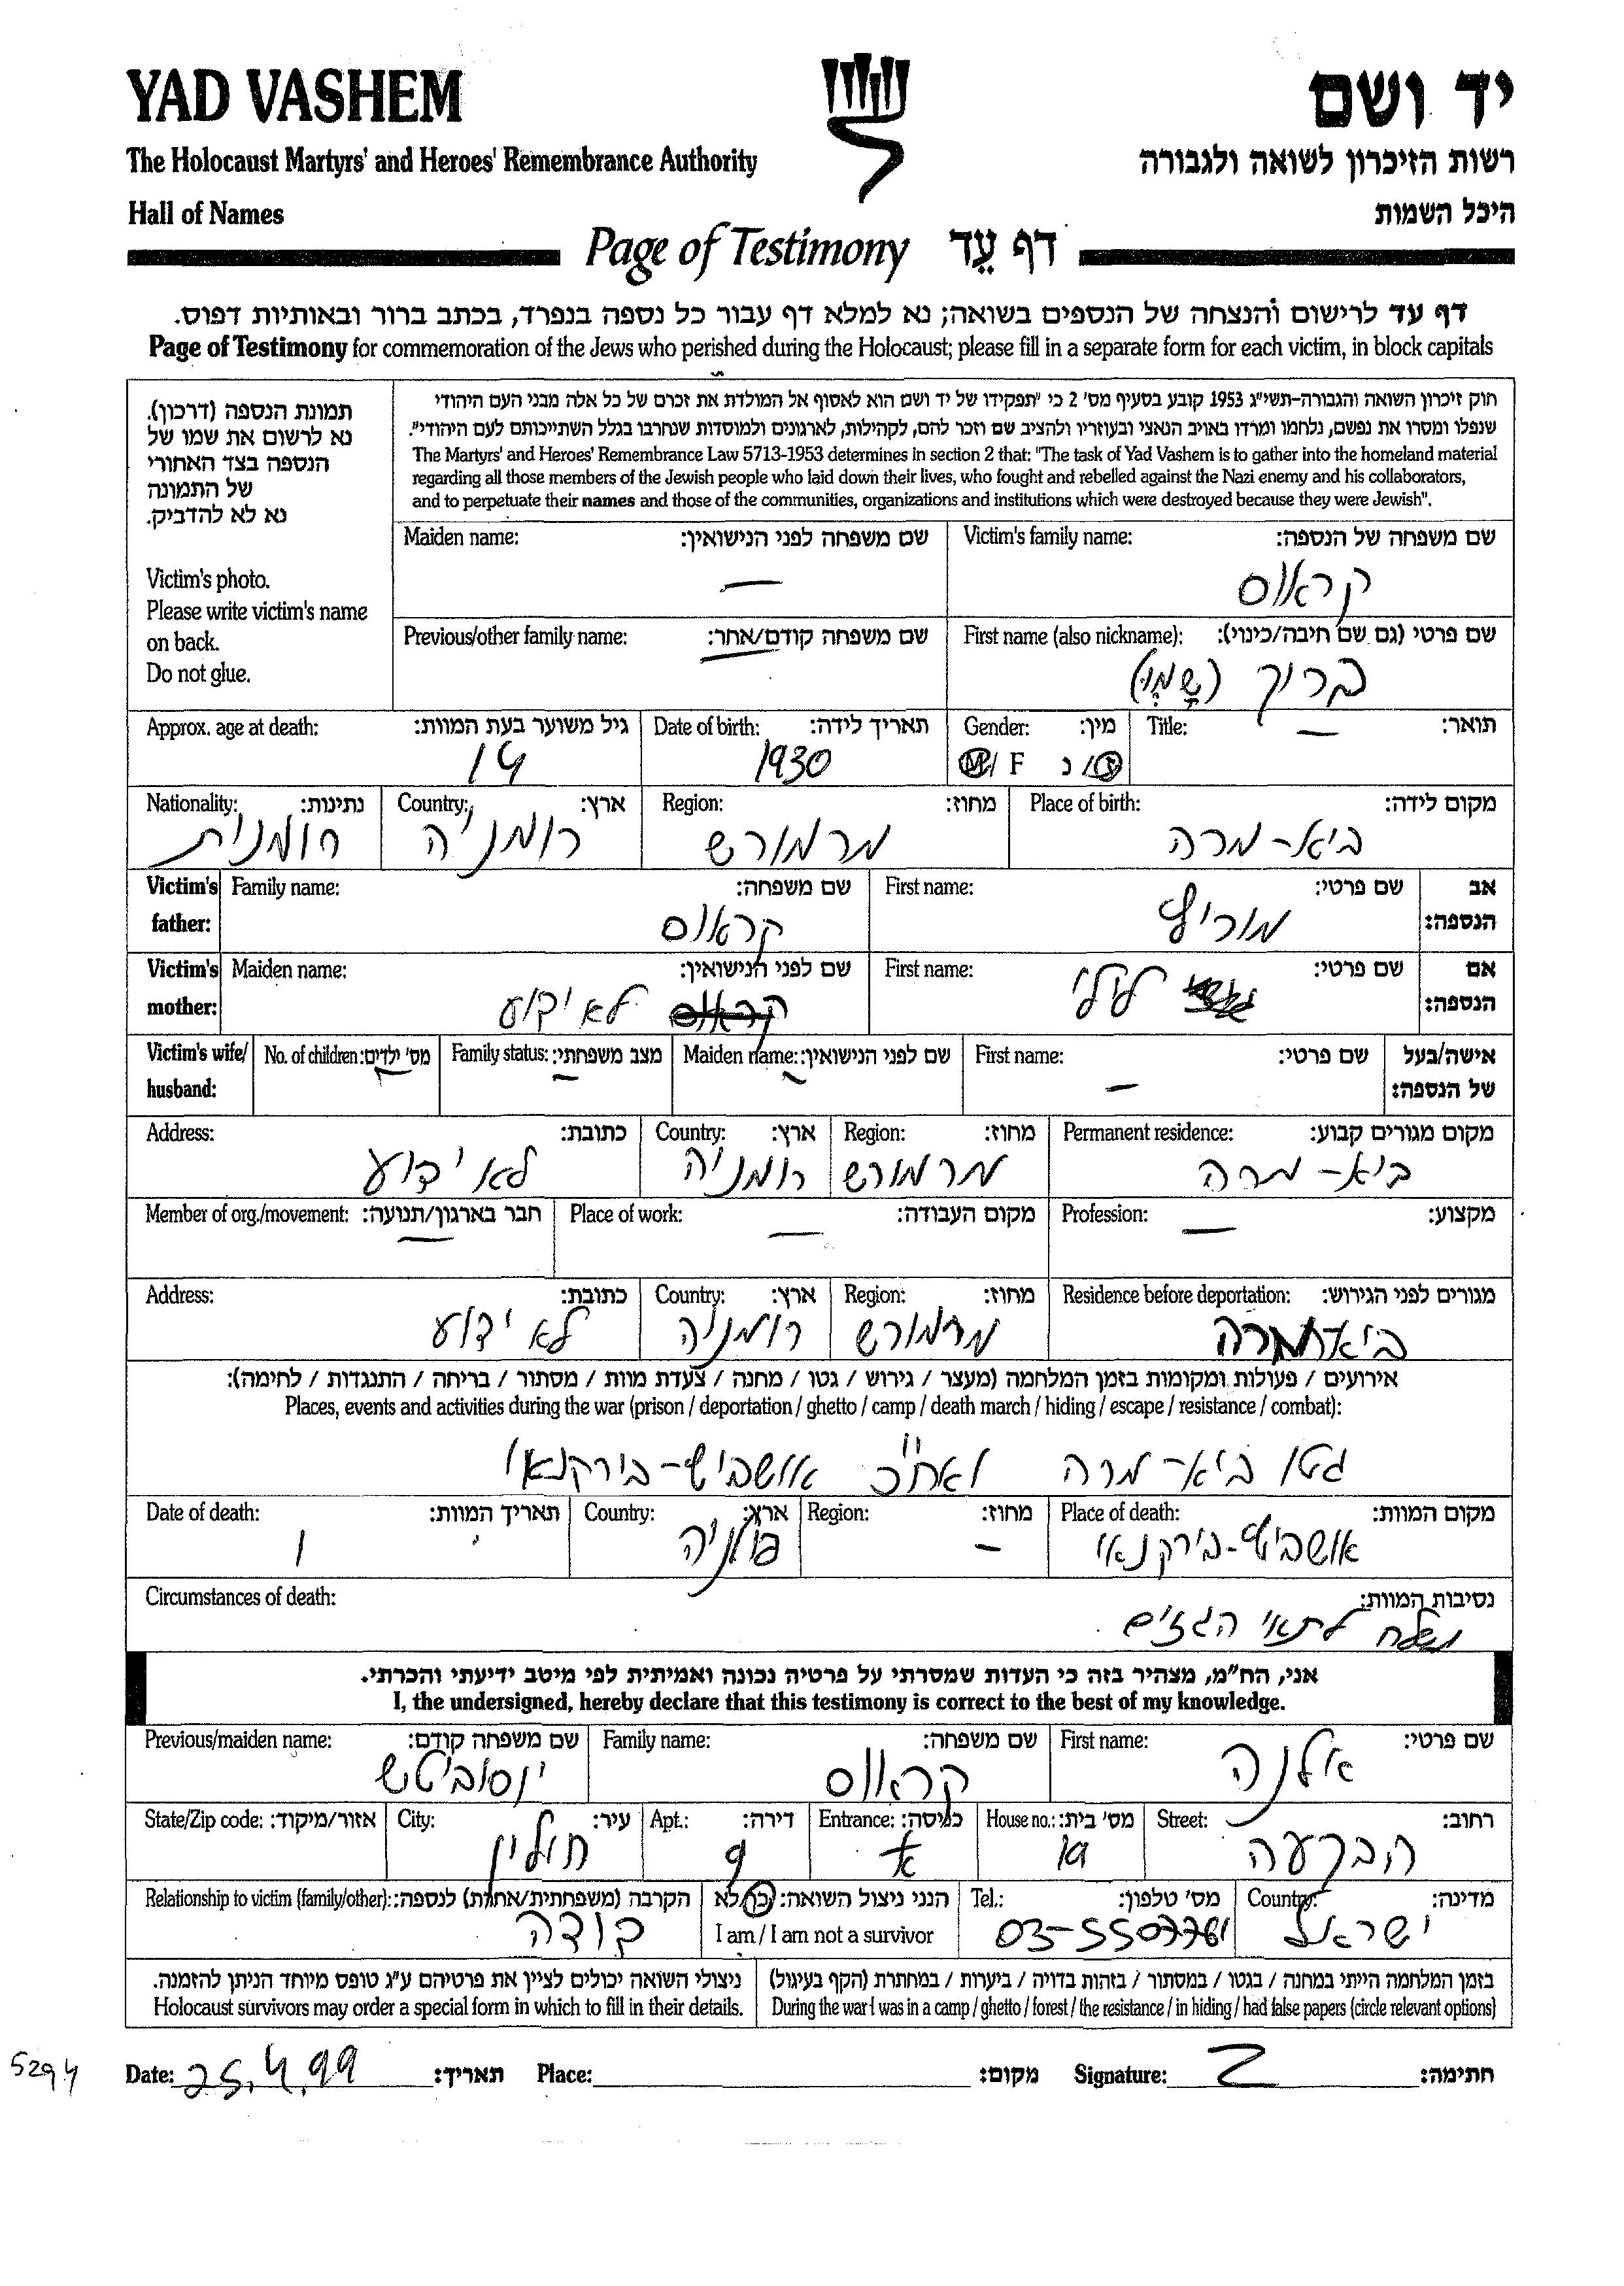 YAD VASHEM
יד ושם
The Holocaust Martyrs' and Heroes' Remembrance Authority
רשות הזיכרון לשואה ולגבורה
Hall of Names
היכל השמות
Page of Testimony דף עֵד
דף עד לרישום והנצחה של הנספים בשואה; נא למלא דף עבור כל נספה בנפרד, בכתב ברור ובאותיות דפוס.
Page of Testimony for commemoration of the Jews who perished during the Holocaust; please fill in a separate form for each victim, in block capitals
תמונת הנספה (דרכון).
נא לרשום את שמו של
הנספה בצד האחורי
של התמונה
נא לא להדביק.
Victim's photo.
Please write victim's name
on back.
Do not glue.
חוק זיכרון השואה והגבורה-תשי"ג 1953 קובע בסעיף מס' 2 כי "תפקידו של יד ושם הוא לאסוף אל המולדת את זכרם של כל אלה מבני העם היהודי
שנפלו ומסרו את נפשם, נלחמו ומרדו באויב הנאצי ובעוזריו ולהציב שם וזכר להם, לקהילות, לארגונים ולמוסדות שנחרבו בגלל השתייכותם לעם היהודי".
The Martyrs' and Heroes' Remembrance Law 5713-1953 determines in section 2 that: "The task of Yad Vashem is to gather into the homeland material
regarding all those members of the Jewish people who laid down their lives, who fought and rebelled against the Nazi enemy and his collaborators,
and to perpetuate their names and those of the communities, organizations and institutions which were destroyed because they were Jewish".
Victim's family name: שם משפחה של הנספה:
קראוס
Maiden name: שם משפחה לפני הנישואין:
—
First name (also nickname): שם פרטי (גם שם חיבה/כינוי):
ברוך (שָמִי)
Previous/other family name: שם משפחה קודם/אחר:
Title: תואר:
—
Gender: מין:
M/ F ז/ נ
Date of birth: תאריך לידה:
1930
Approx. age at death: גיל משוער בעת המוות:
14
Place of birth: מקום לידה:
ביא-מרה
Region: מחוז:
מרמורש
Country: ארץ:
רומניה
Nationality: נתינות:
רומנית
Victim's father: אב הנספה:
First name: שם פרטי:
מוריץ
Family name: שם משפחה:
קראוס
Victim's mother: אם הנספה:
First name: שם פרטי:
לילי
Maiden name: שם לפני הנישואין:
קראוס לא ידוע
Victim's wife/ husband: אישה/בעל של הנספה:
First name: שם פרטי:
—
Maiden name: שם לפני הנישואין:
Family status: מצב משפחתי:
No. of children: מס' ילדים:
Permanent residence: מקום מגורים קבוע:
ביא-מרה
Region: מחוז:
מרמורש
Country: ארץ:
רומניה
Address: כתובת:
לא ידוע
Profession: מקצוע:
—
Place of work: מקום העבודה:
—
Member of org./movement: חבר בארגון/תנועה:
—
Residence before deportation: מגורים לפני הגירוש:
ביא-מרה
Region: מחוז:
מרמורש
Country: ארץ:
רומניה
Address: כתובת:
לא ידוע
אירועים / פעולות ומקומות בזמן המלחמה (מעצר / גירוש / גטו / מחנה / צעדת מוות / מסתור / בריחה / התנגדות / לחימה):
Places, events and activities during the war (prison / deportation / ghetto / camp / death march / hiding / escape / resistance / combat):
גטו ביא-מרה ואח"כ אושביץ-בירקנאו
Place of death: מקום המוות:
אושביץ-בירקנאו
Region: מחוז:
—
Country: ארץ:
פולניה
Date of death: תאריך המוות:
Circumstances of death: נסיבות המוות:
נשלח לתאי הגזים
אני, הח"מ, מצהיר בזה כי העדות שמסרתי על פרטיה נכונה ואמיתית לפי מיטב ידיעתי והכרתי.
I, the undersigned, hereby declare that this testimony is correct to the best of my knowledge.
First name: שם פרטי:
אלנה
Family name: שם משפחה:
קראוס
Previous/maiden name: שם משפחה קודם:
יוסוביטש
Street: רחוב:
הבקעה
House no.: מס' בית:
Entrance: כניסה:
א
Apt.: דירה:
9
City: עיר:
חולון
State/Zip code: אזור/מיקוד:
Country: מדינה:
ישראל
Tel.: מס' טלפון:
03-5507761
הנני ניצול השואה: כן/לא
I am / I am not a survivor
Relationship to victim (family/other): הקרבה (משפחתית/אחרת) לנספה:
דודה
בזמן המלחמה הייתי במחנה / בגטו / במסתור / בזהות בדויה / ביערות / במחתרת (הקף בעיגול)
During the war I was in a camp / ghetto / forest / the resistance / in hiding / had false papers (circle relevant options)
ניצולי השואה יכולים לציין את פרטיהם ע"ג טופס מיוחד הניתן להזמנה.
Holocaust survivors may order a special form in which to fill in their details.
5294
Date: 25.4.99 תאריך: Place: מקום: Signature: חתימה: